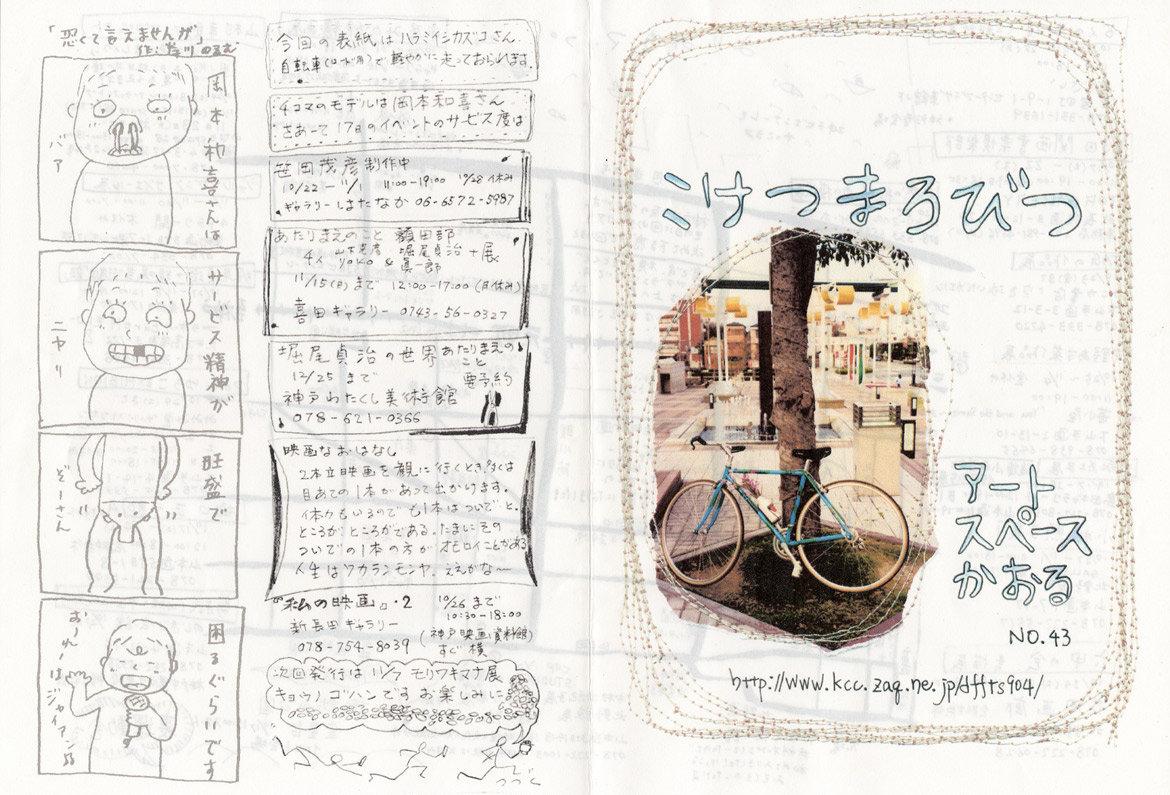 こけつまろびつ
アート
スペース
かおる
NO.43
http://www.kcc.zaq.ne.jp/dffts904/
「恐くて言えませんが」
作: 川のるむ
岡本和喜さんは
バァ
サービス精神が
ニヤリ
旺盛で
ぞーさん
困るぐらいです
おーれーはジャイアン
今回の表紙はハラミイシカズコさん.
自転車(ロード用)で軽やかに走っておられます.
4コマのモデルは岡本和喜さん
さあーて17日のイベントのサービス度は
笹岡茂彦制作中
10/22-11/1 11:00-19:00 10/28休み
ギャラリーしまたなか 06-6572-5987
あたりまえのこと 額田部
4人 山下克彦 堀尾貞治 + 展
YOKO & 眞一郎
11/15(日)まで 12:00-17:00(月休み)
喜田ギャラリー 0743-56-0327
堀尾貞治の世界 あたりまえの
こと
12/25まで 要予約
神戸わたくし美術館
078-621-0366
映画なおはなし
2本立映画を観に行くとき多くは
目あての1本があって出かけます。
体力もいるのでもう1本はついでと。
ところがところがである。たまにその
ついでの1本の方がオモロイことがある
人生はワカランモンヤ、ええがな〜
『私の映画』・2 10/26まで
10:30-18:00
新長田ギャラリー (神戸映画資料館)
078-754-8039 すぐ横
次回発行は11/7 モリワキマナ展
キョウノゴハンです お楽しみに
つづく